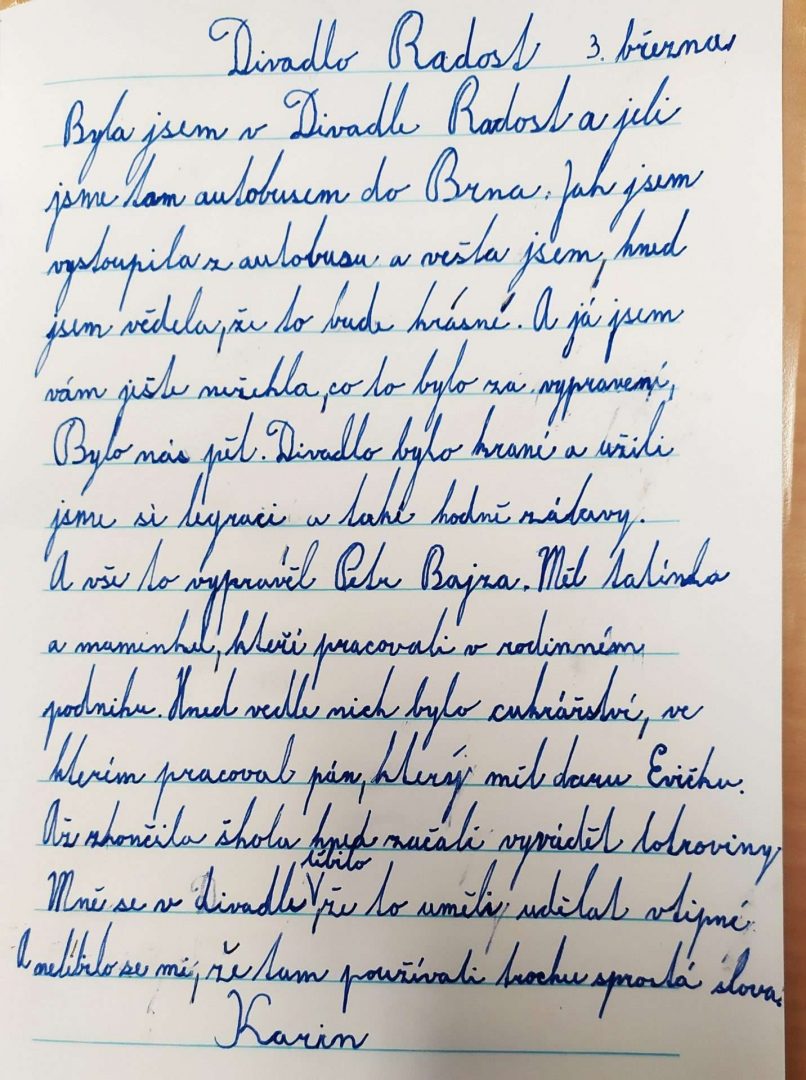 Divadlo Radost 3. března
Byla jsem v Divadle Radost a jeli
jsme tam autobusem do Brna. Jak jsem
vystoupila z autobusu a vešla jsem, hned
jsem věděla, že to bude krásné. A já jsem
vám ješte neřekla, co to bylo za vypravení,
Bylo nás pět. Divadlo bylo hrané a užili
jsme si legraci a také hodně zábavy.
A vše to vyprávěl Petr Bajza. Měl tatínka
a mamenku, kteří pracovali v rodinném
podniku. Hned vedle nich bylo cukrářství, ve
kterém pracoval pán, který měl dceru Evičku.
Až skončila škola hned začali vyvádět lotroviny
líbilo
Mně se v divadle, že to uměli udělat vtipné
A nelíbilo se mi, že tam používali trochu sprostá slova.
Karin